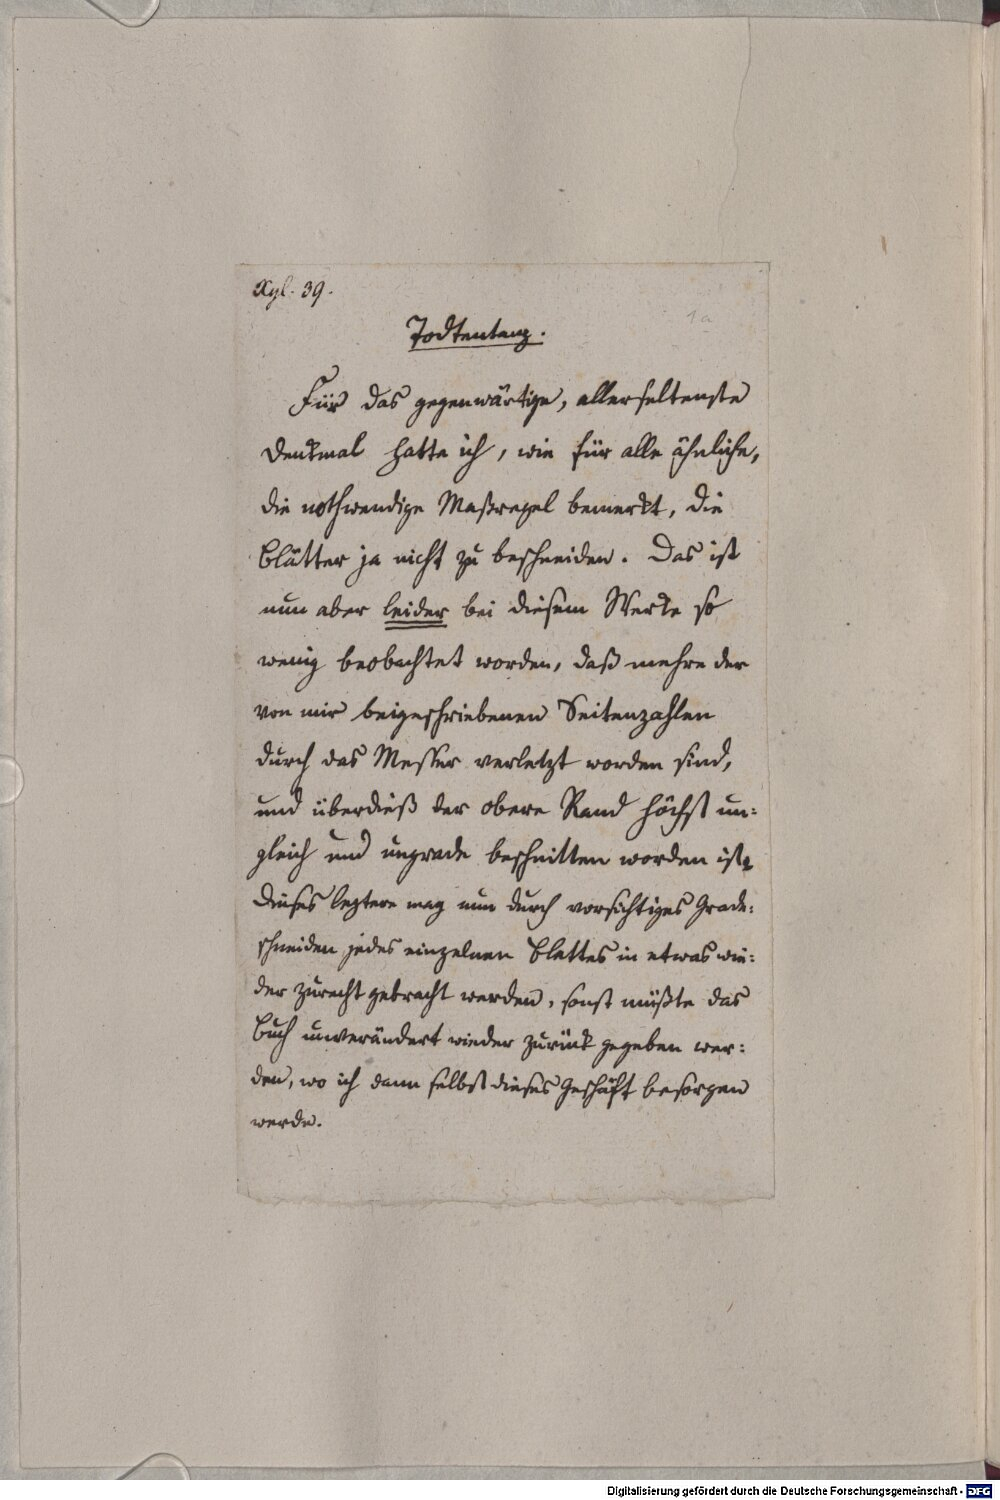 Xyl. 39.
1a
Todtentanz.
Für das gegenwärtige, allerseltenste
Denkmal hatte ich, wie für alle ähnliche,
die nothwendige Maßregel bemerkt, die
Blätter ja nicht zu beschneiden. Das ist
nun aber leider bei diesem Werke so
wenig beobachtet worden, daß mehre der
von mir beigeschriebenen Seitenzahlen
durch das Messer verletzt worden sind,
und überdieß der obere Rand höchst un:
gleich und ungrade beschnitten worden ist.
Dieses leztere mag nun durch vorsichtiges Grade:
schneiden jedes einzelnen Blattes in etwas wie:
der zurecht gebracht werden, sonst müßte das
Buch unverändert wieder zurück gegeben wer:
den, wo ich dann selbst dieses Geschäft besorgen
werde.
Digitalisierung gefördert durch die Deutsche Forschungsgemeinschaft - DFG